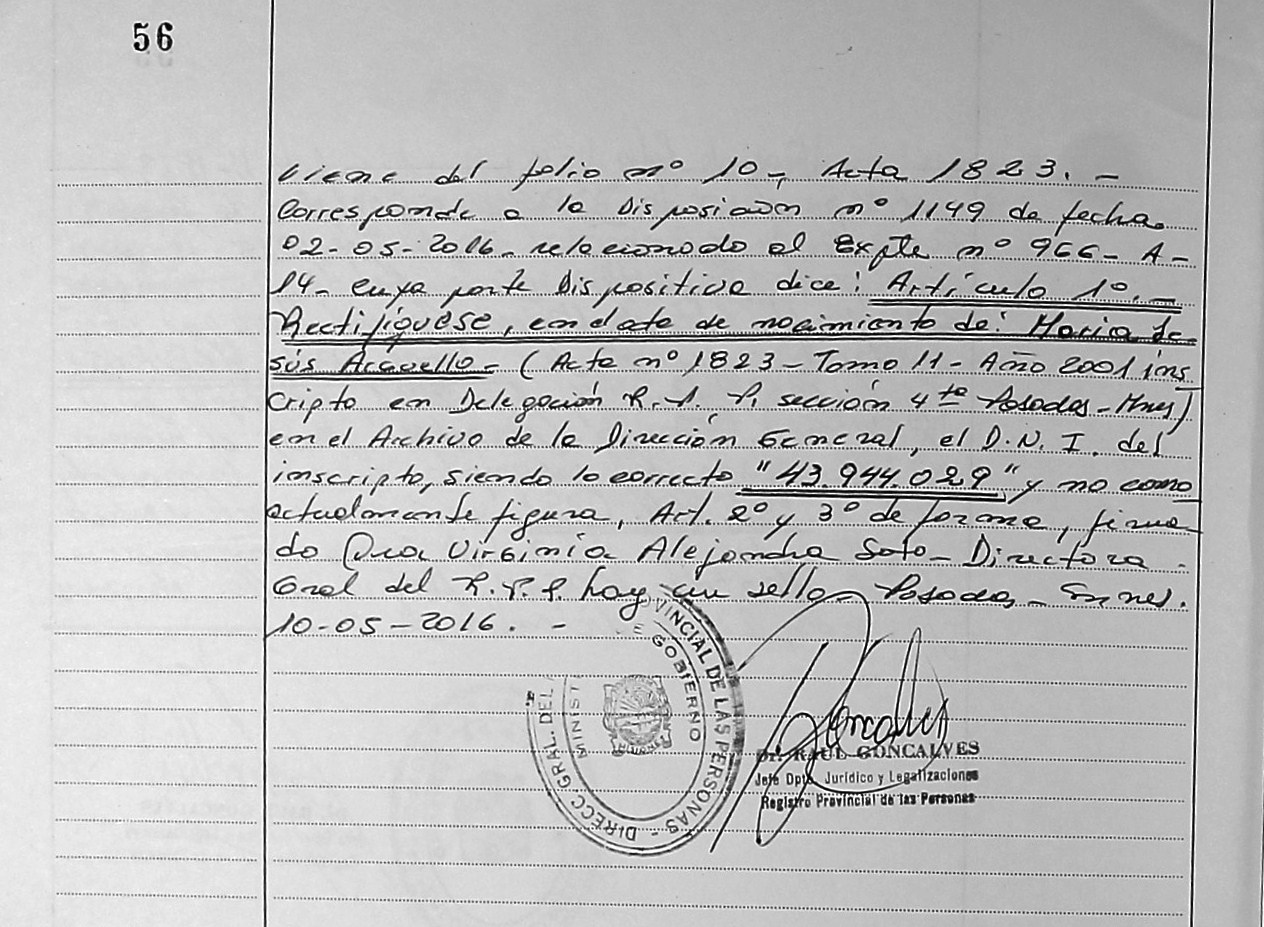 56
Viene del folio nº 10-, Acta 1823. -
Corresponde a la Disposición nº 1149 de fecha
02-05-2016- relacionado al Expte nº 966- A-
14- cuya parte Dispositiva dice: Artículo 1º.-
Rectifíquese, en el acta de nacimiento de: Maria Je-
sús Acavello- (Acta nº 1823- Tomo 11- Año 2001 ins
cripto en Delegación R. P. P. sección 4ta Posadas-Mnes)
en el Archivo de la Dirección General, el D.N.I. del
inscripto, siendo lo correcto "43.944.029" y no como
actualmente figura, Art. 2º y 3º de forma, firma
do Dra Virginia Alejandra Soto- Directora
Gral del R.P.P. hay un sello- Posadas-
10-05-2016. -
DIRECC GRAL. DEL VINCIAL DE LAS PERSONAS -
MINIST E GOBIERNO
Dr. RAUL GONCALVES
Jefe Dpto. Jurídico y Legalizaciones
Registro Provincial de las Personas